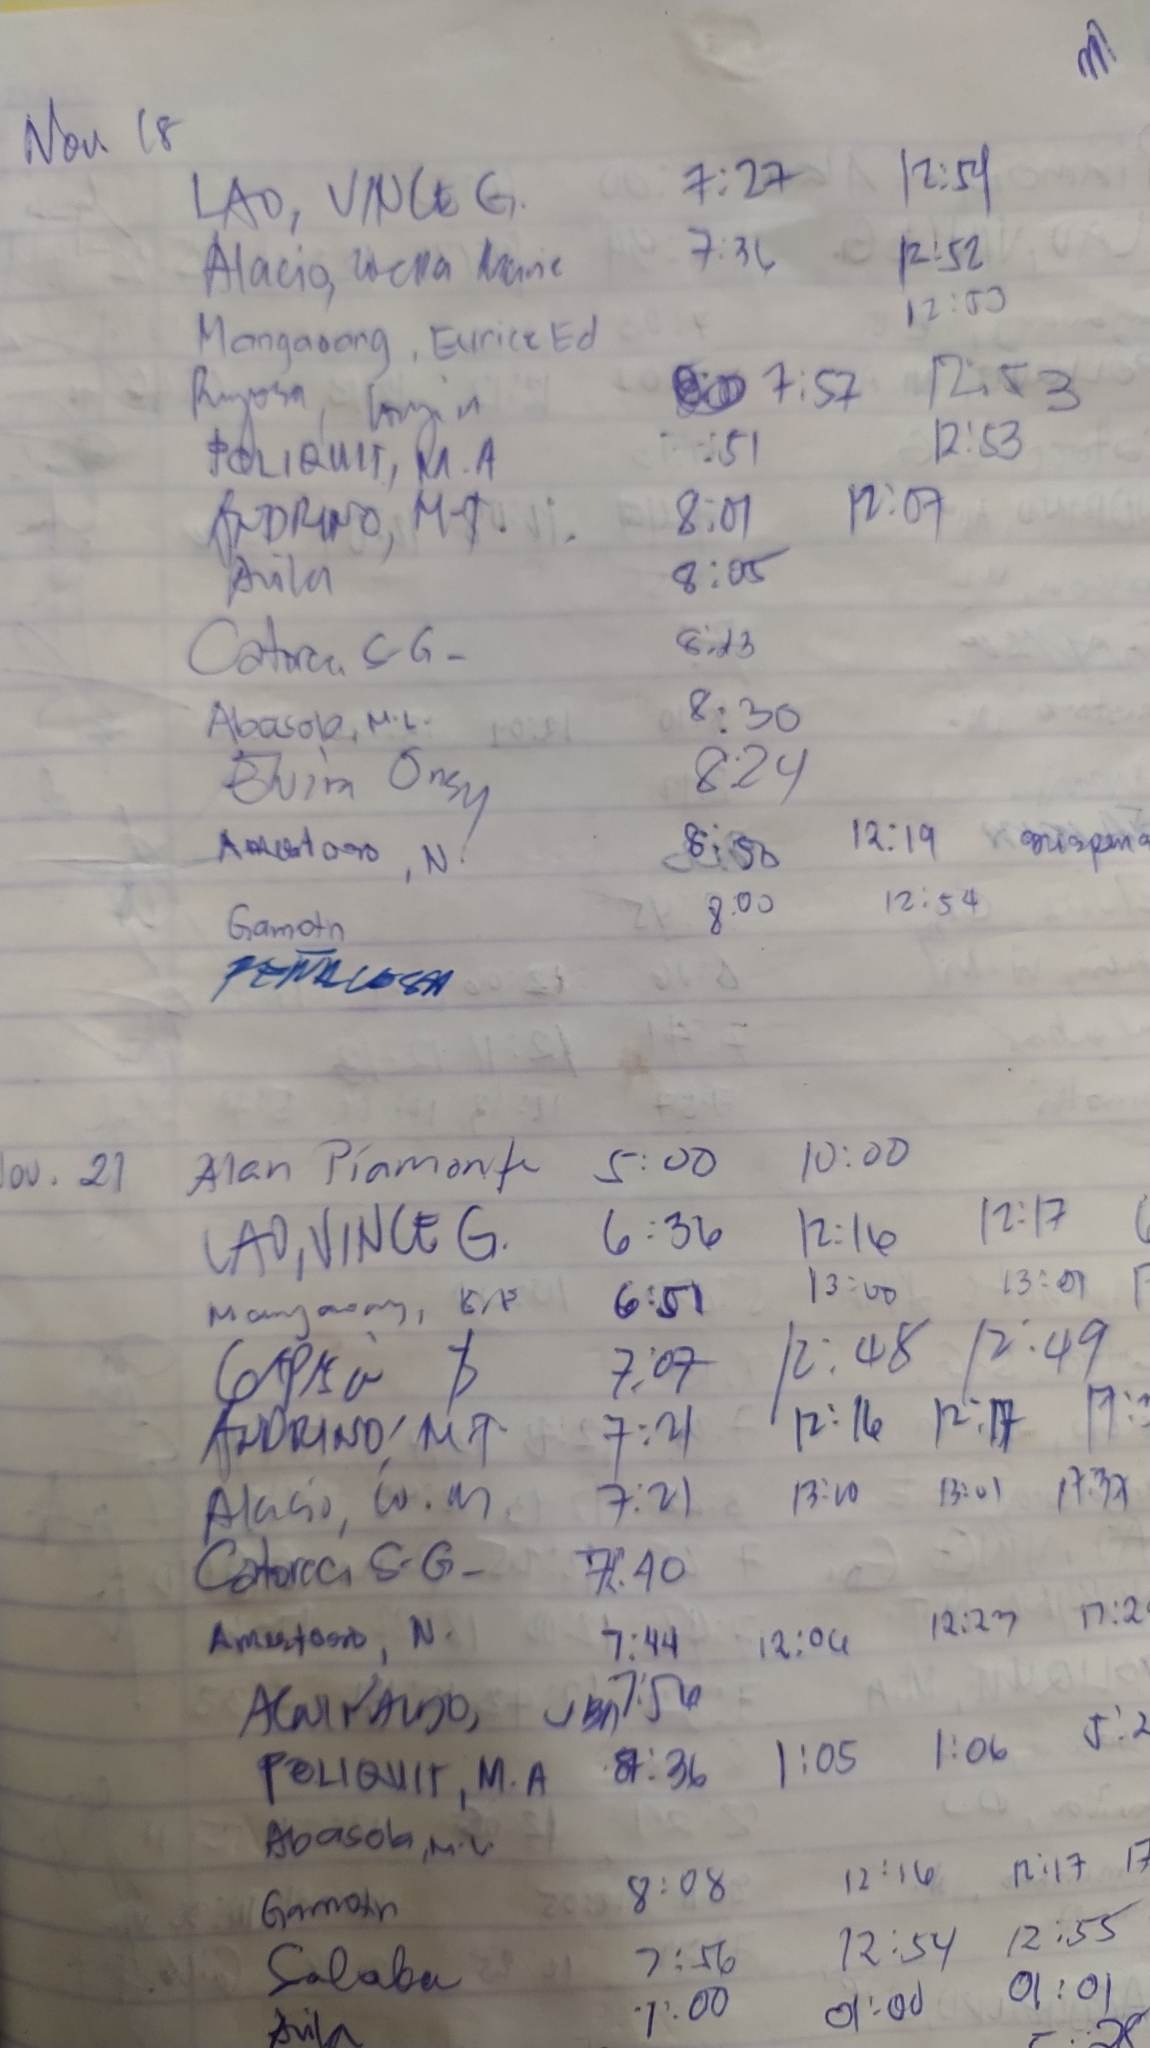 Nov 18
LAO, VINCE G. 7:27 12:54
Alacio, 7:36 12:52
Mangaoang, Eurice Ed 12:53
7:57 12:53
POLIQUIT, M.A :51 12:53
ANDRINO, M.T. 8:01 12:07
Avila 8:05
Catorce S G- 8:23
Abasola, M.L. 8:30
Elvira Onsy 8:24
Amestoso, N. 8:50 12:19
Gamotn 8:00 12:54
PEÑALOSA
Nov. 21 Alan Piamonte 5:00 10:00
LAO, VINCE G. 6:36 12:16 12:17
Mangaoang, 6:51 13:00 13:01
7:07 12:48 12:49
ANDRINO, M.T. 7:21 12:16 12:17
Alacio, W.M 7:21 13:00 13:01 17:32
Catorce, S-G- 7:40
Amestoso, N. 7:44 12:06 12:27
7:56
POLIQUIT, M.A 8:36 1:05 1:06
Abasola, M.L
Gamotn 8:08 12:16 12:17
Salaba 7:56 12:54 12:55
Avila 7:00 01:00 01:01